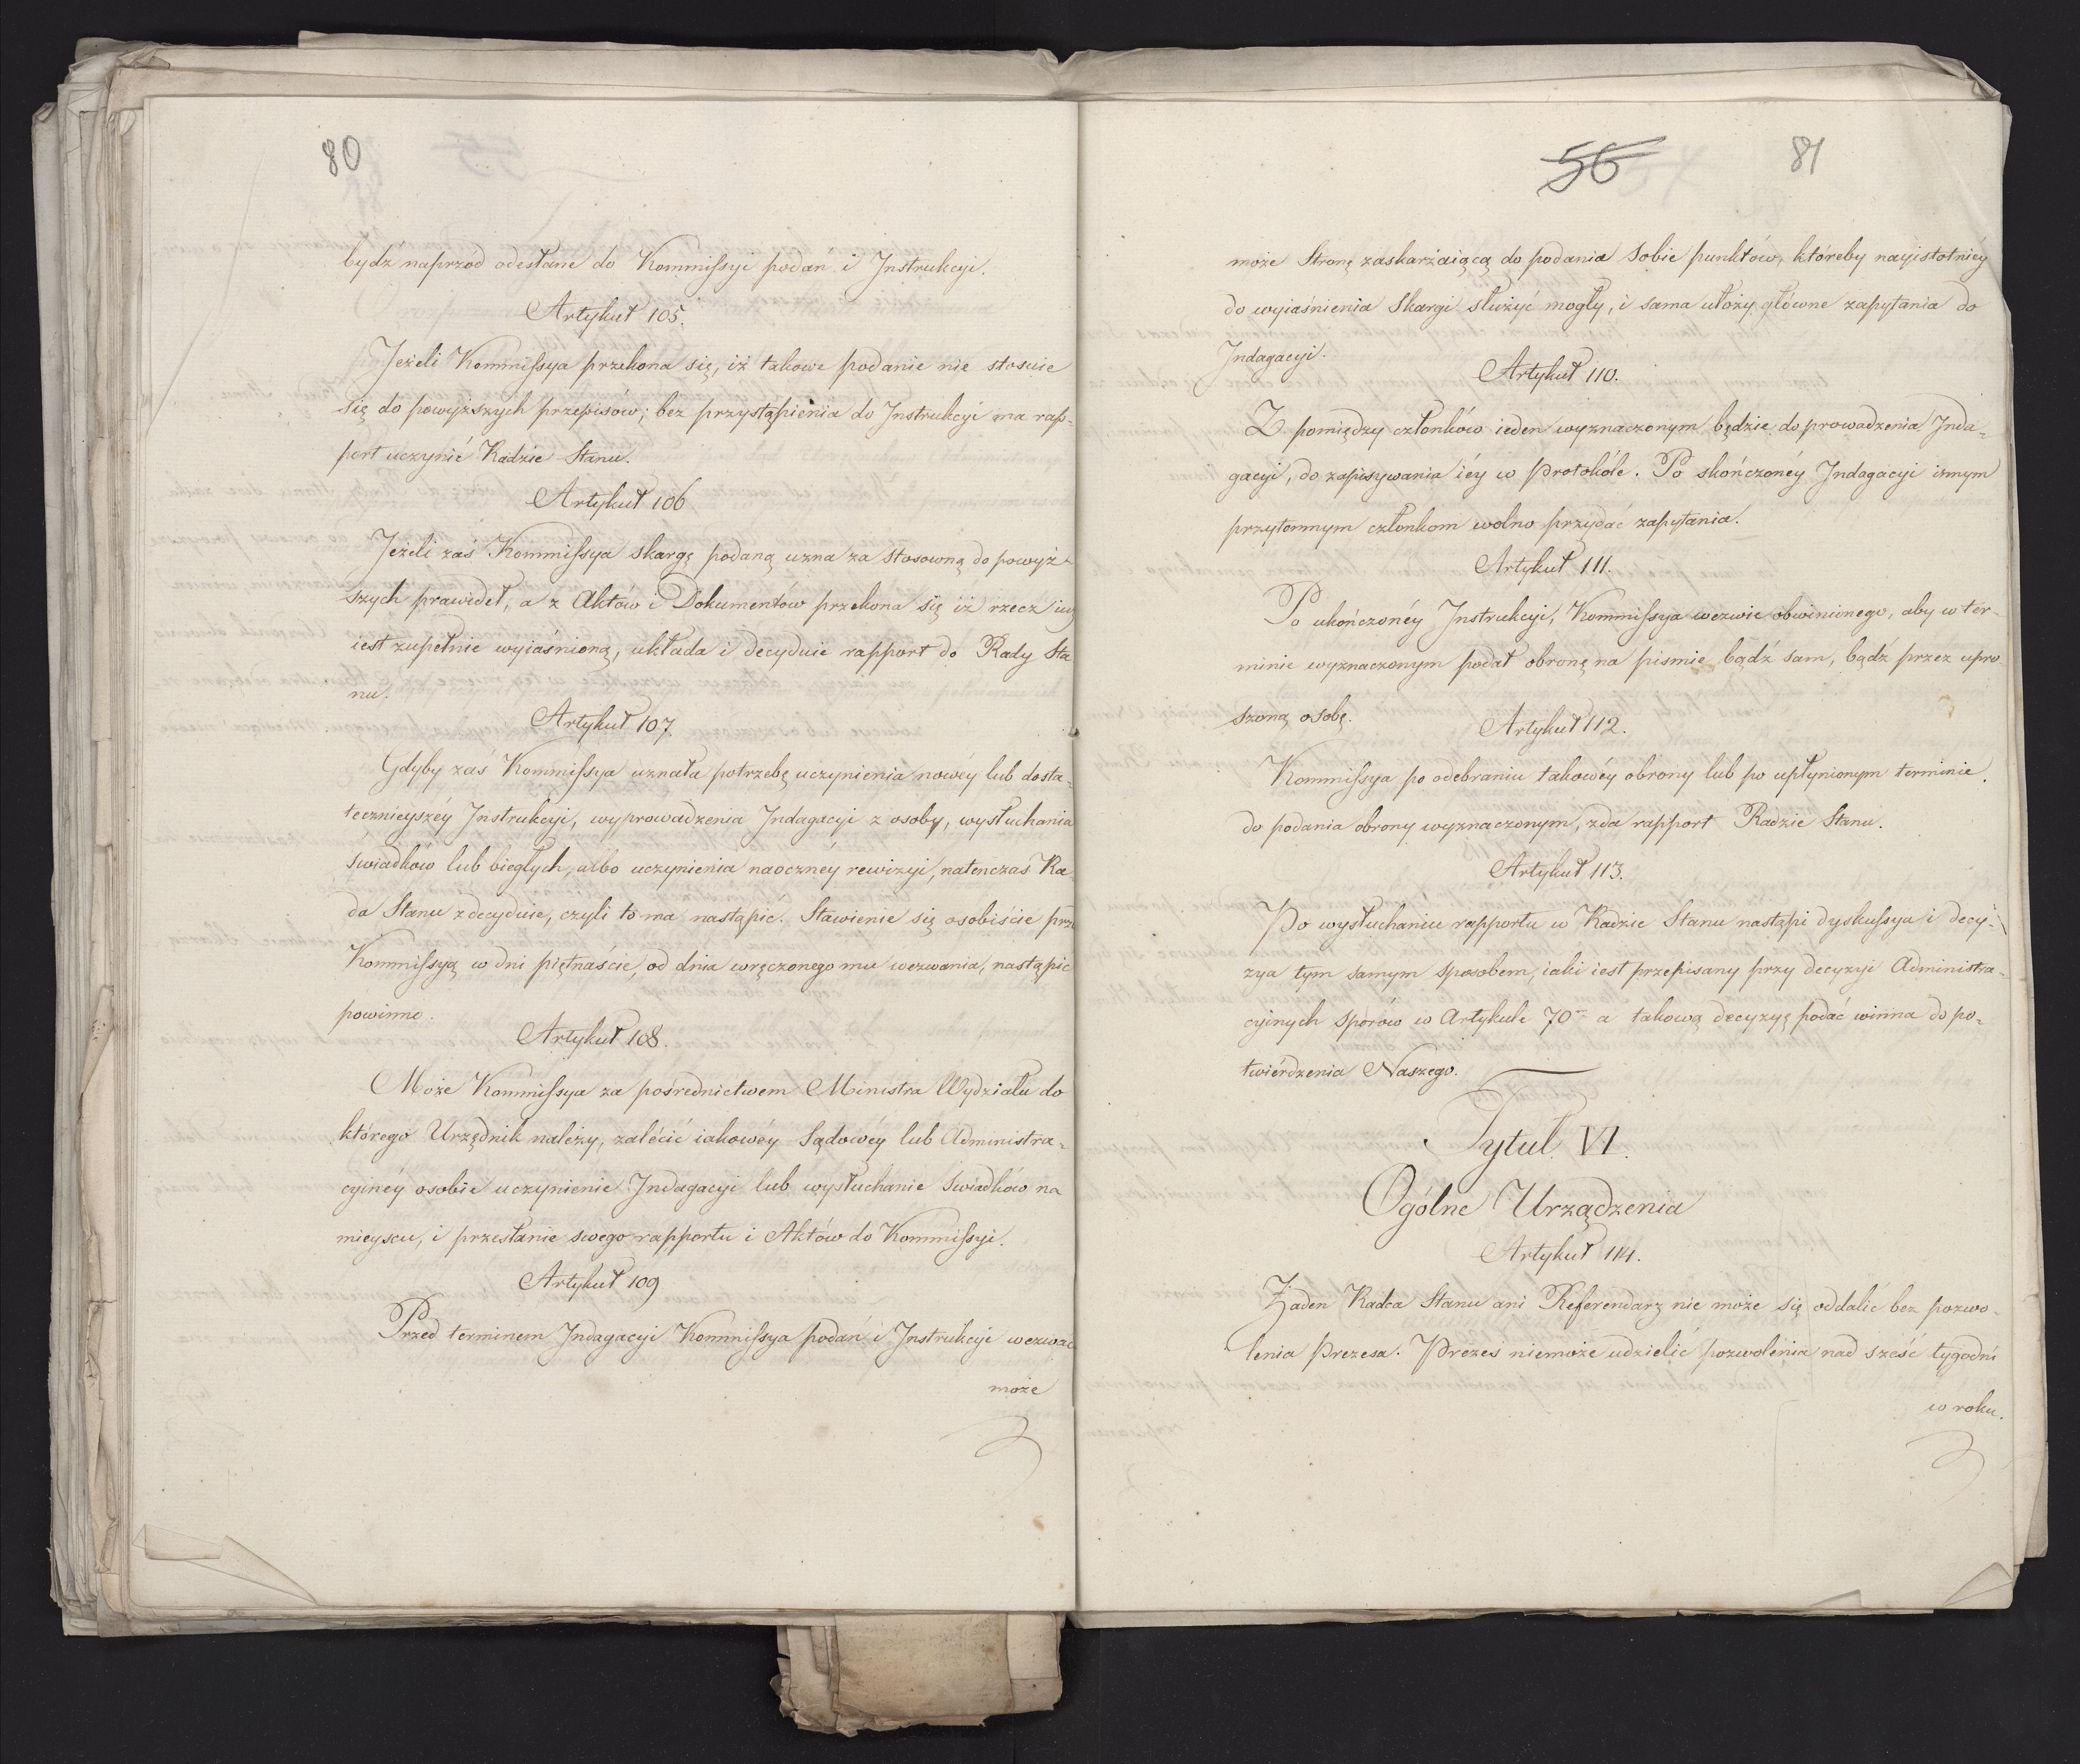 80
bydź naprzod odesłane do Kommissyi podań i Instrukcyi.
Artykuł 105.
Jeżeli Kommissya przekona się, iż takowe podanie nie stosuie
się do powyższych przepisów; bez przystąpienia do Instrukcyi ma rap-
port uczynić Radzie Stanu.
Artykuł 106
Jeżeli zaś Kommissya skargę podaną uzna za stosowną do powyż-
szych prawideł, a z Aktów i Dokumentów przekona się iż rzecz iuż
iest zupełnie wyiaśnioną, układa i decyduie rapport do Rady Sta
nu.
Artykuł 107.
Gdyby zaś Kommissya uznała potrzebę uczynienia nowéy lub dosta-
tecznieyszéy Instrukcyi, wyprowadzenia Indagacyi z osoby, wysłuchania
świadków lub biegłych, albo uczynienia naoczney rewizyi, natenczas Ra-
da Stanu zdecyduie, czyli to ma nastąpić. Stawienie się osobiście prze
Kommissyą w dni piętnaście, od dnia wręczonego mu wezwania, nastąpić
powinno.
Artykuł 108.
Może Kommissya za pośrednictwem Ministra Wydziału do
którego Urzędnik należy, zalécić iakowéy Sądowéy lub Administra-
cyinéy osobie uczynienie Indagacyi lub wysłuchanie świadków na
mieyscu, i przesłanie swego rapportu i Aktów do Kommissyi.
Artykuł 109
Przed terminem Indagacyi Kommissya podań i Instrukcyi wezwać
może
56 81
może Stronę zaskarżaiącą do podania sobie punktów, któreby nayistotniéy
do wyiaśnienia Skargi służyć mogły, i sama ułoży główne zapytania do
Indagacyi.
Artykuł 110.
Z pomiędzy członków ieden wyznaczonym będzie do prowadzenia Inda-
gacyi, do zapisywania iéy w Protokóle. Po skończonéy Indagacyi innym
przytomnym członkom wolno przydać zapytania.
Artykuł 111.
Po ukończonéy Instrukcyi, Kommissya wezwie obwinionego, aby w ter-
minie wyznaczonym podał obronę na pismie bądź sam, bądź przez upro-
szoną osobę.
Artykuł 112.
Kommissya po odebraniu takowéy obrony lub po upłynionym terminie
do podania obrony wyznaczonym, zda rapport Radzie Stanu.
Artykuł 113.
Po wysłuchaniu rapportu w Radzie Stanu nastąpi dyskussya i decy-
zya tym samym sposobem, iaki iest przepisany przy decyzyi Administra-
cyinych sporów w Artykule 70m a takową decyzyę podać winna do po-
twiérdzenia Naszego.
Tytuł VI.
Ogólne Urządzenia
Artykuł 114.
Żaden Radca Stanu ani Referendarz nie może się oddalić bez pozwo-
lenia Prezesa. Prezes niemoże udzielić pozwolenia nad sześć tygodni
w roku.